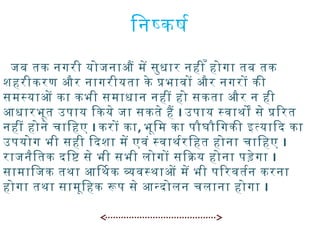 निष्कर्ष
जब तक नगरी योजनाऔं में सुधार नहीँ होगा तब तक
शहरीकरण और नागरीयता के प्रभावों और नगरों की
समस्याओं का कभी समाधान नहीं हो सकता और न ही
आधारभूत उपाय किये जा सकते हैं । उपाय स्वार्थों से प्ररित
नहीं होने चाहिए । करों का, भूमि का पौघौगिकी इत्यादि का
उपयोग भी सही दिशा में एवं स्वार्थरहित होना चाहिए ।
राजनैतिक दष्टि से भी सभी लोगों सक्रिय होना पड़ेगा ।
सामाजिक तथा आर्थिक व्यवस्थाओं में भी परिवर्तन करना
होगा तथा सामूहिक रूप से आन्दोलन चलाना होगा ।